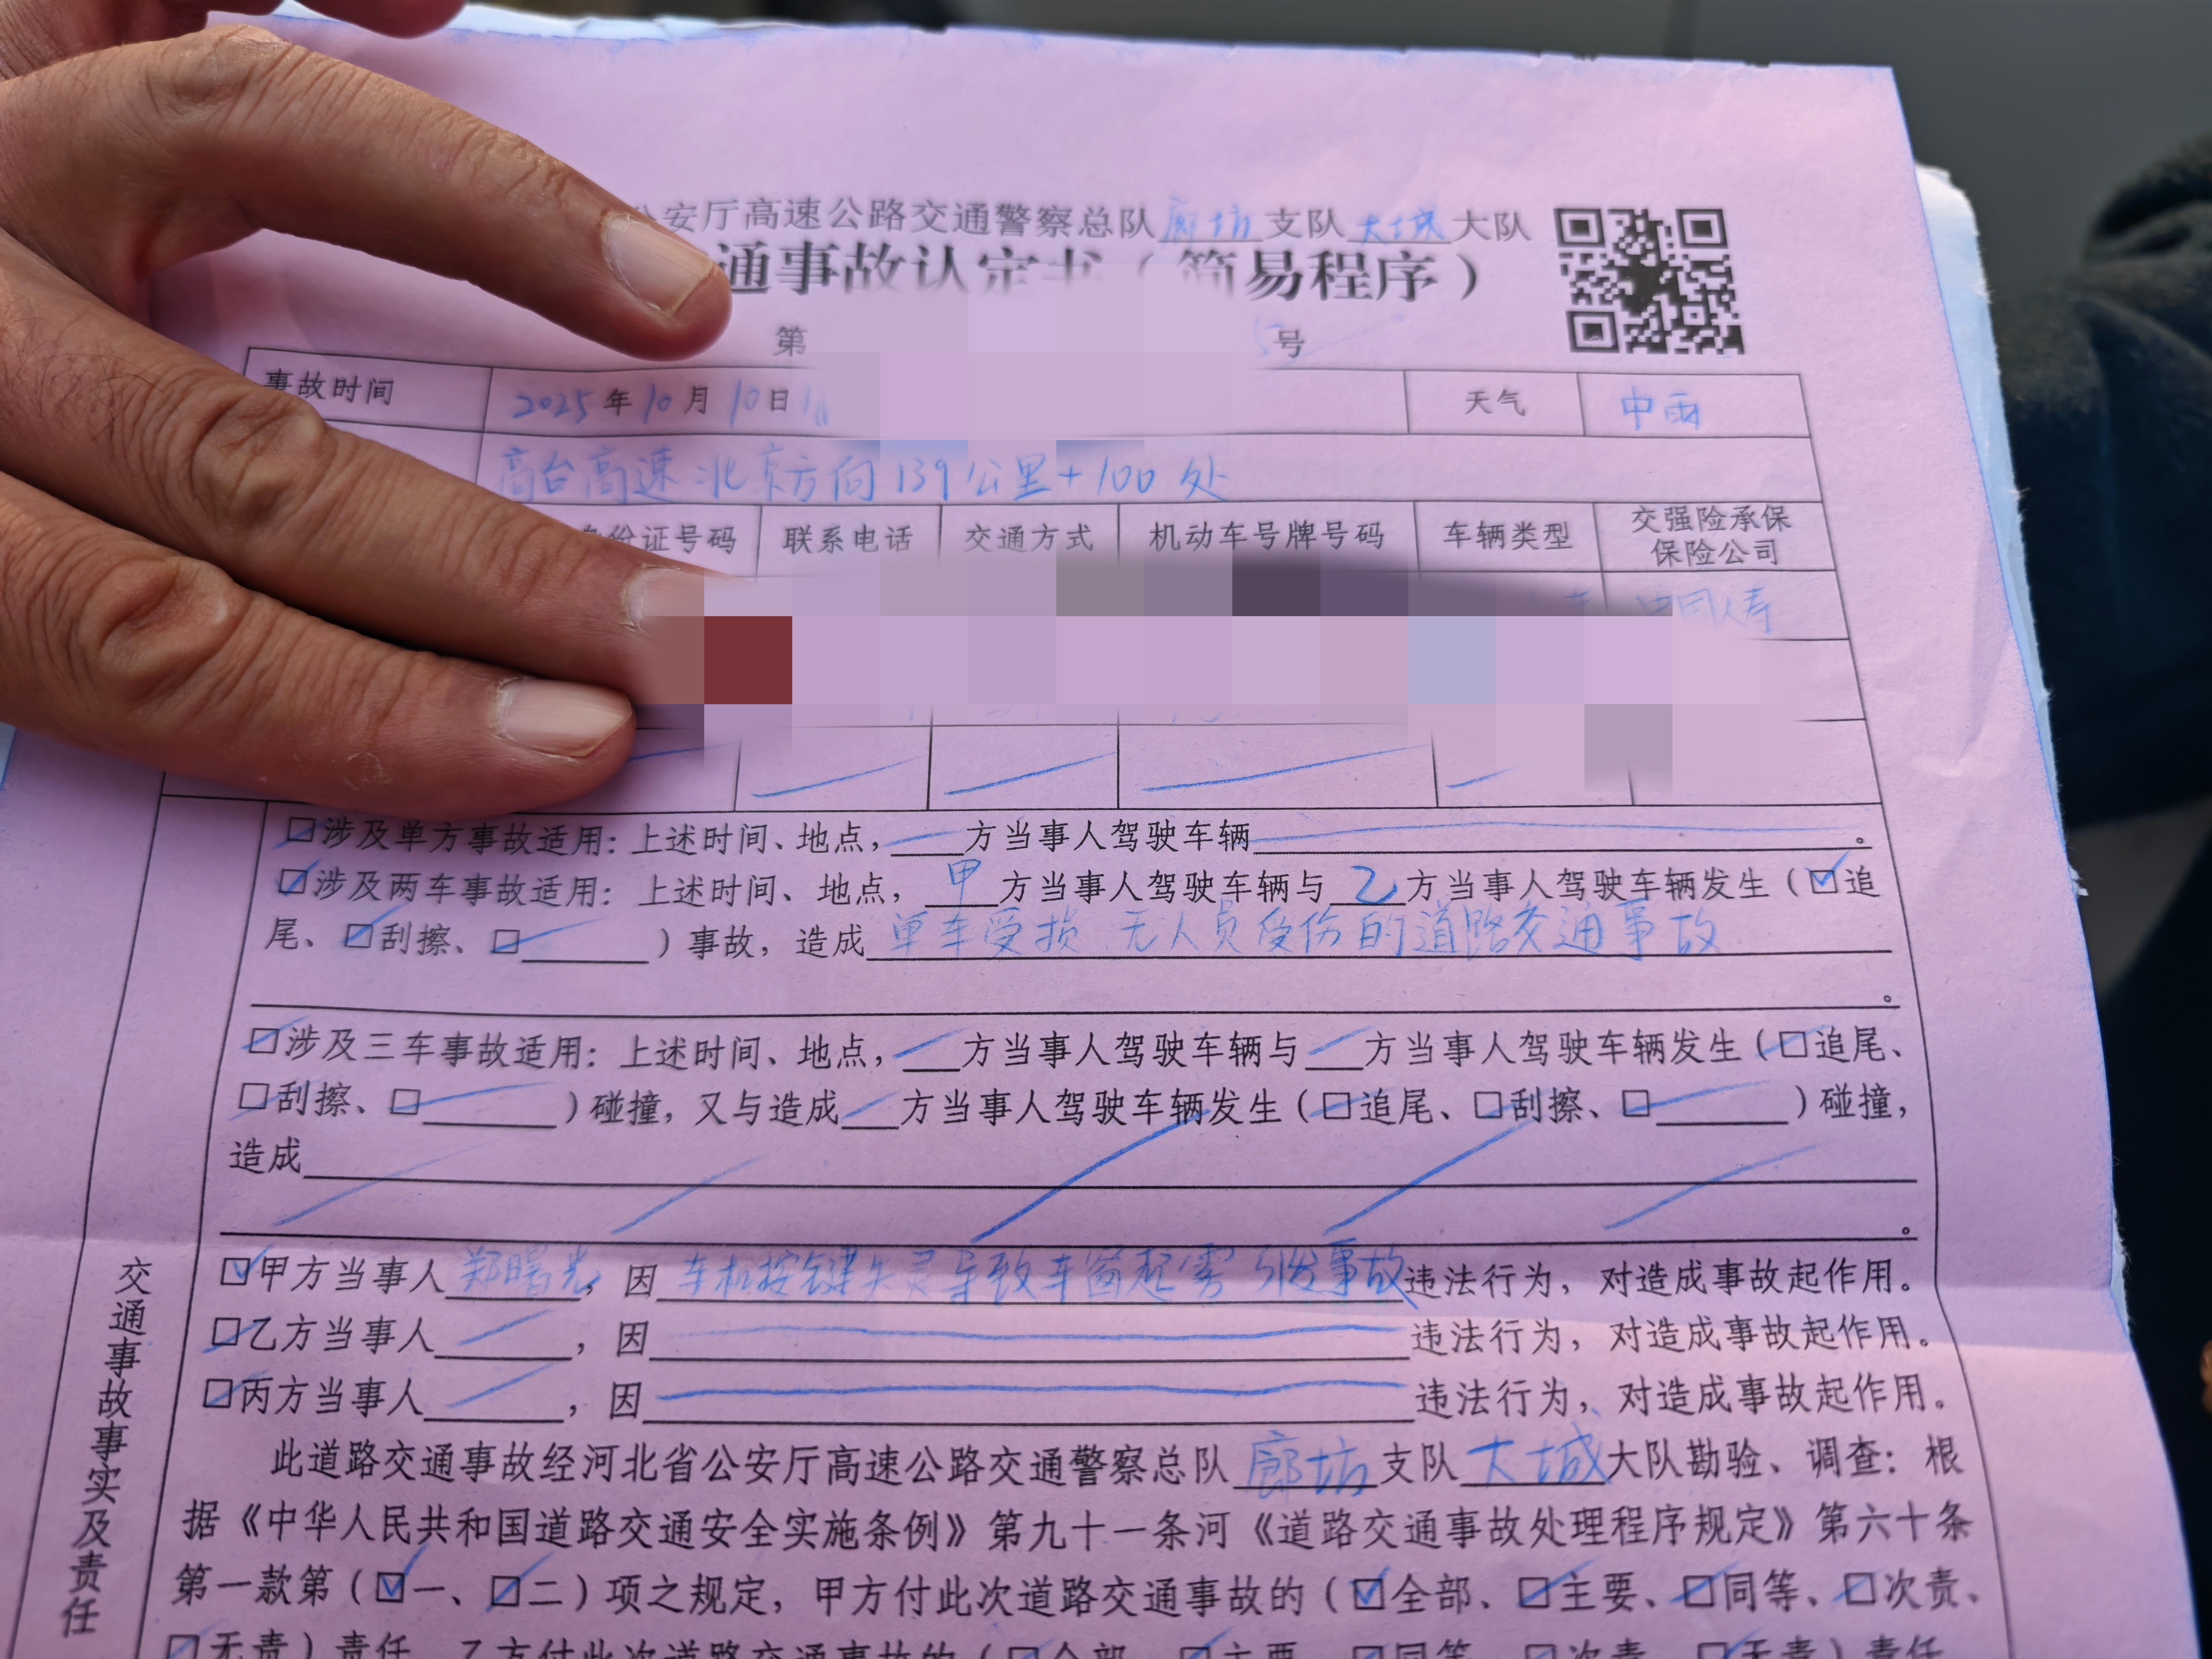 公安厅高速公路交通警察总队廊坊支队大城大队
通事故认定书（简易程序）
第 号
事故时间 2025年10月10日 天气 中雨
高台高速北京方向139公里+100处
身份证号码 联系电话 交通方式 机动车号牌号码 车辆类型 交强险承保
保险公司
中国人寿
□涉及单方事故适用：上述时间、地点，方当事人驾驶车辆。
☑涉及两车事故适用：上述时间、地点，甲方当事人驾驶车辆与乙方当事人驾驶车辆发生（☑追
尾、□刮擦、□）事故，造成单车受损、无人员受伤的道路交通事故
。
□涉及三车事故适用：上述时间、地点，方当事人驾驶车辆与方当事人驾驶车辆发生（□追尾、
□刮擦、□）碰撞，又与造成方当事人驾驶车辆发生（□追尾、□刮擦、□）碰撞，
造成
。
交通事故事实及责任
☑甲方当事人郑曙光，因车机按键失灵导致车窗起雾引发事故违法行为，对造成事故起作用。
□乙方当事人，因违法行为，对造成事故起作用。
□丙方当事人，因违法行为，对造成事故起作用。
此道路交通事故经河北省公安厅高速公路交通警察总队廊坊支队大城大队勘验、调查：根
据《中华人民共和国道路交通安全实施条例》第九十一条河《道路交通事故处理程序规定》第六十条
第一款第（☑一、□二）项之规定，甲方付此次道路交通事故的（☑全部、□主要、□同等、□次责、
□无责）责任，乙方付此次道路交通事故的（□全部、□主要、□同等、□次责、□无责）责任